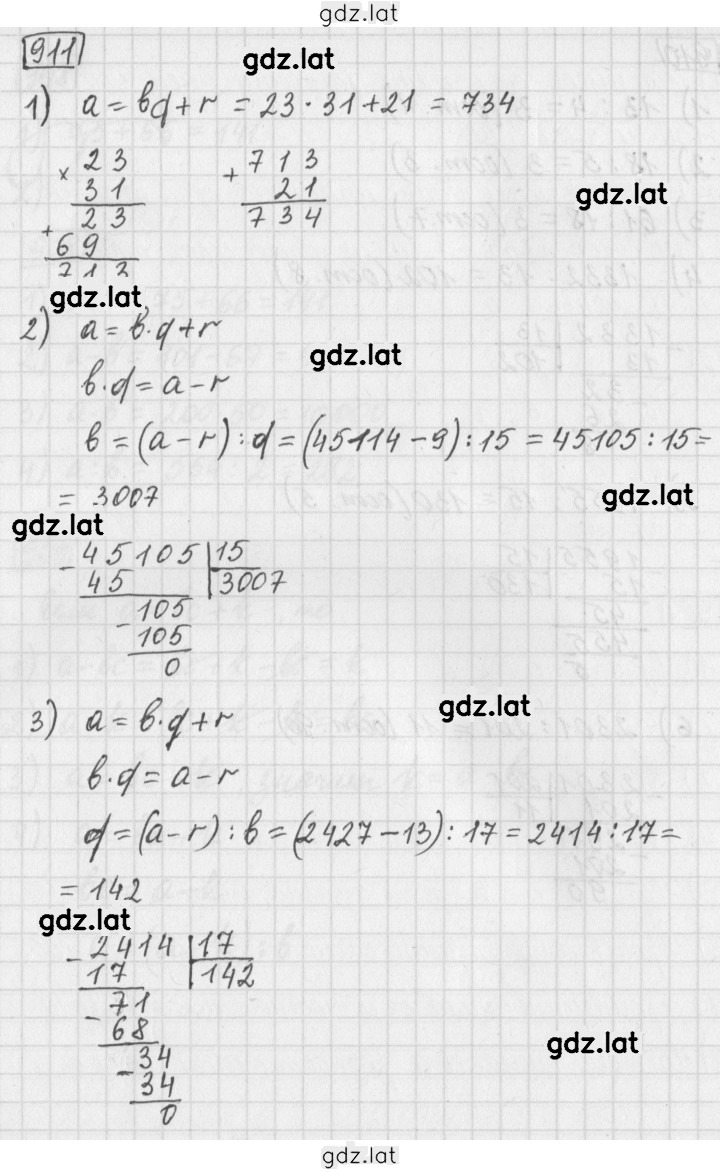 gdz.lat
911
gdz.lat
1) a = bq + r = 23 · 31 + 21 = 734
× 23
31
23
+ 69
713
+ 713
21
734
gdz.lat
gdz.lat
2) a = b · q + r
gdz.lat
b · q = a − r
b = (a − r) : q = (45114 − 9) : 15 = 45105 : 15 =
= 3007
gdz.lat
gdz.lat
− 45105 | 15
45 | 3007
− 105
105
0
gdz.lat
3) a = b · q + r
b · q = a − r
q = (a − r) : b = (2427 − 13) : 17 = 2414 : 17 =
= 142
gdz.lat
− 2414 | 17
17 | 142
− 71
68
− 34
34
0
gdz.lat
gdz.lat